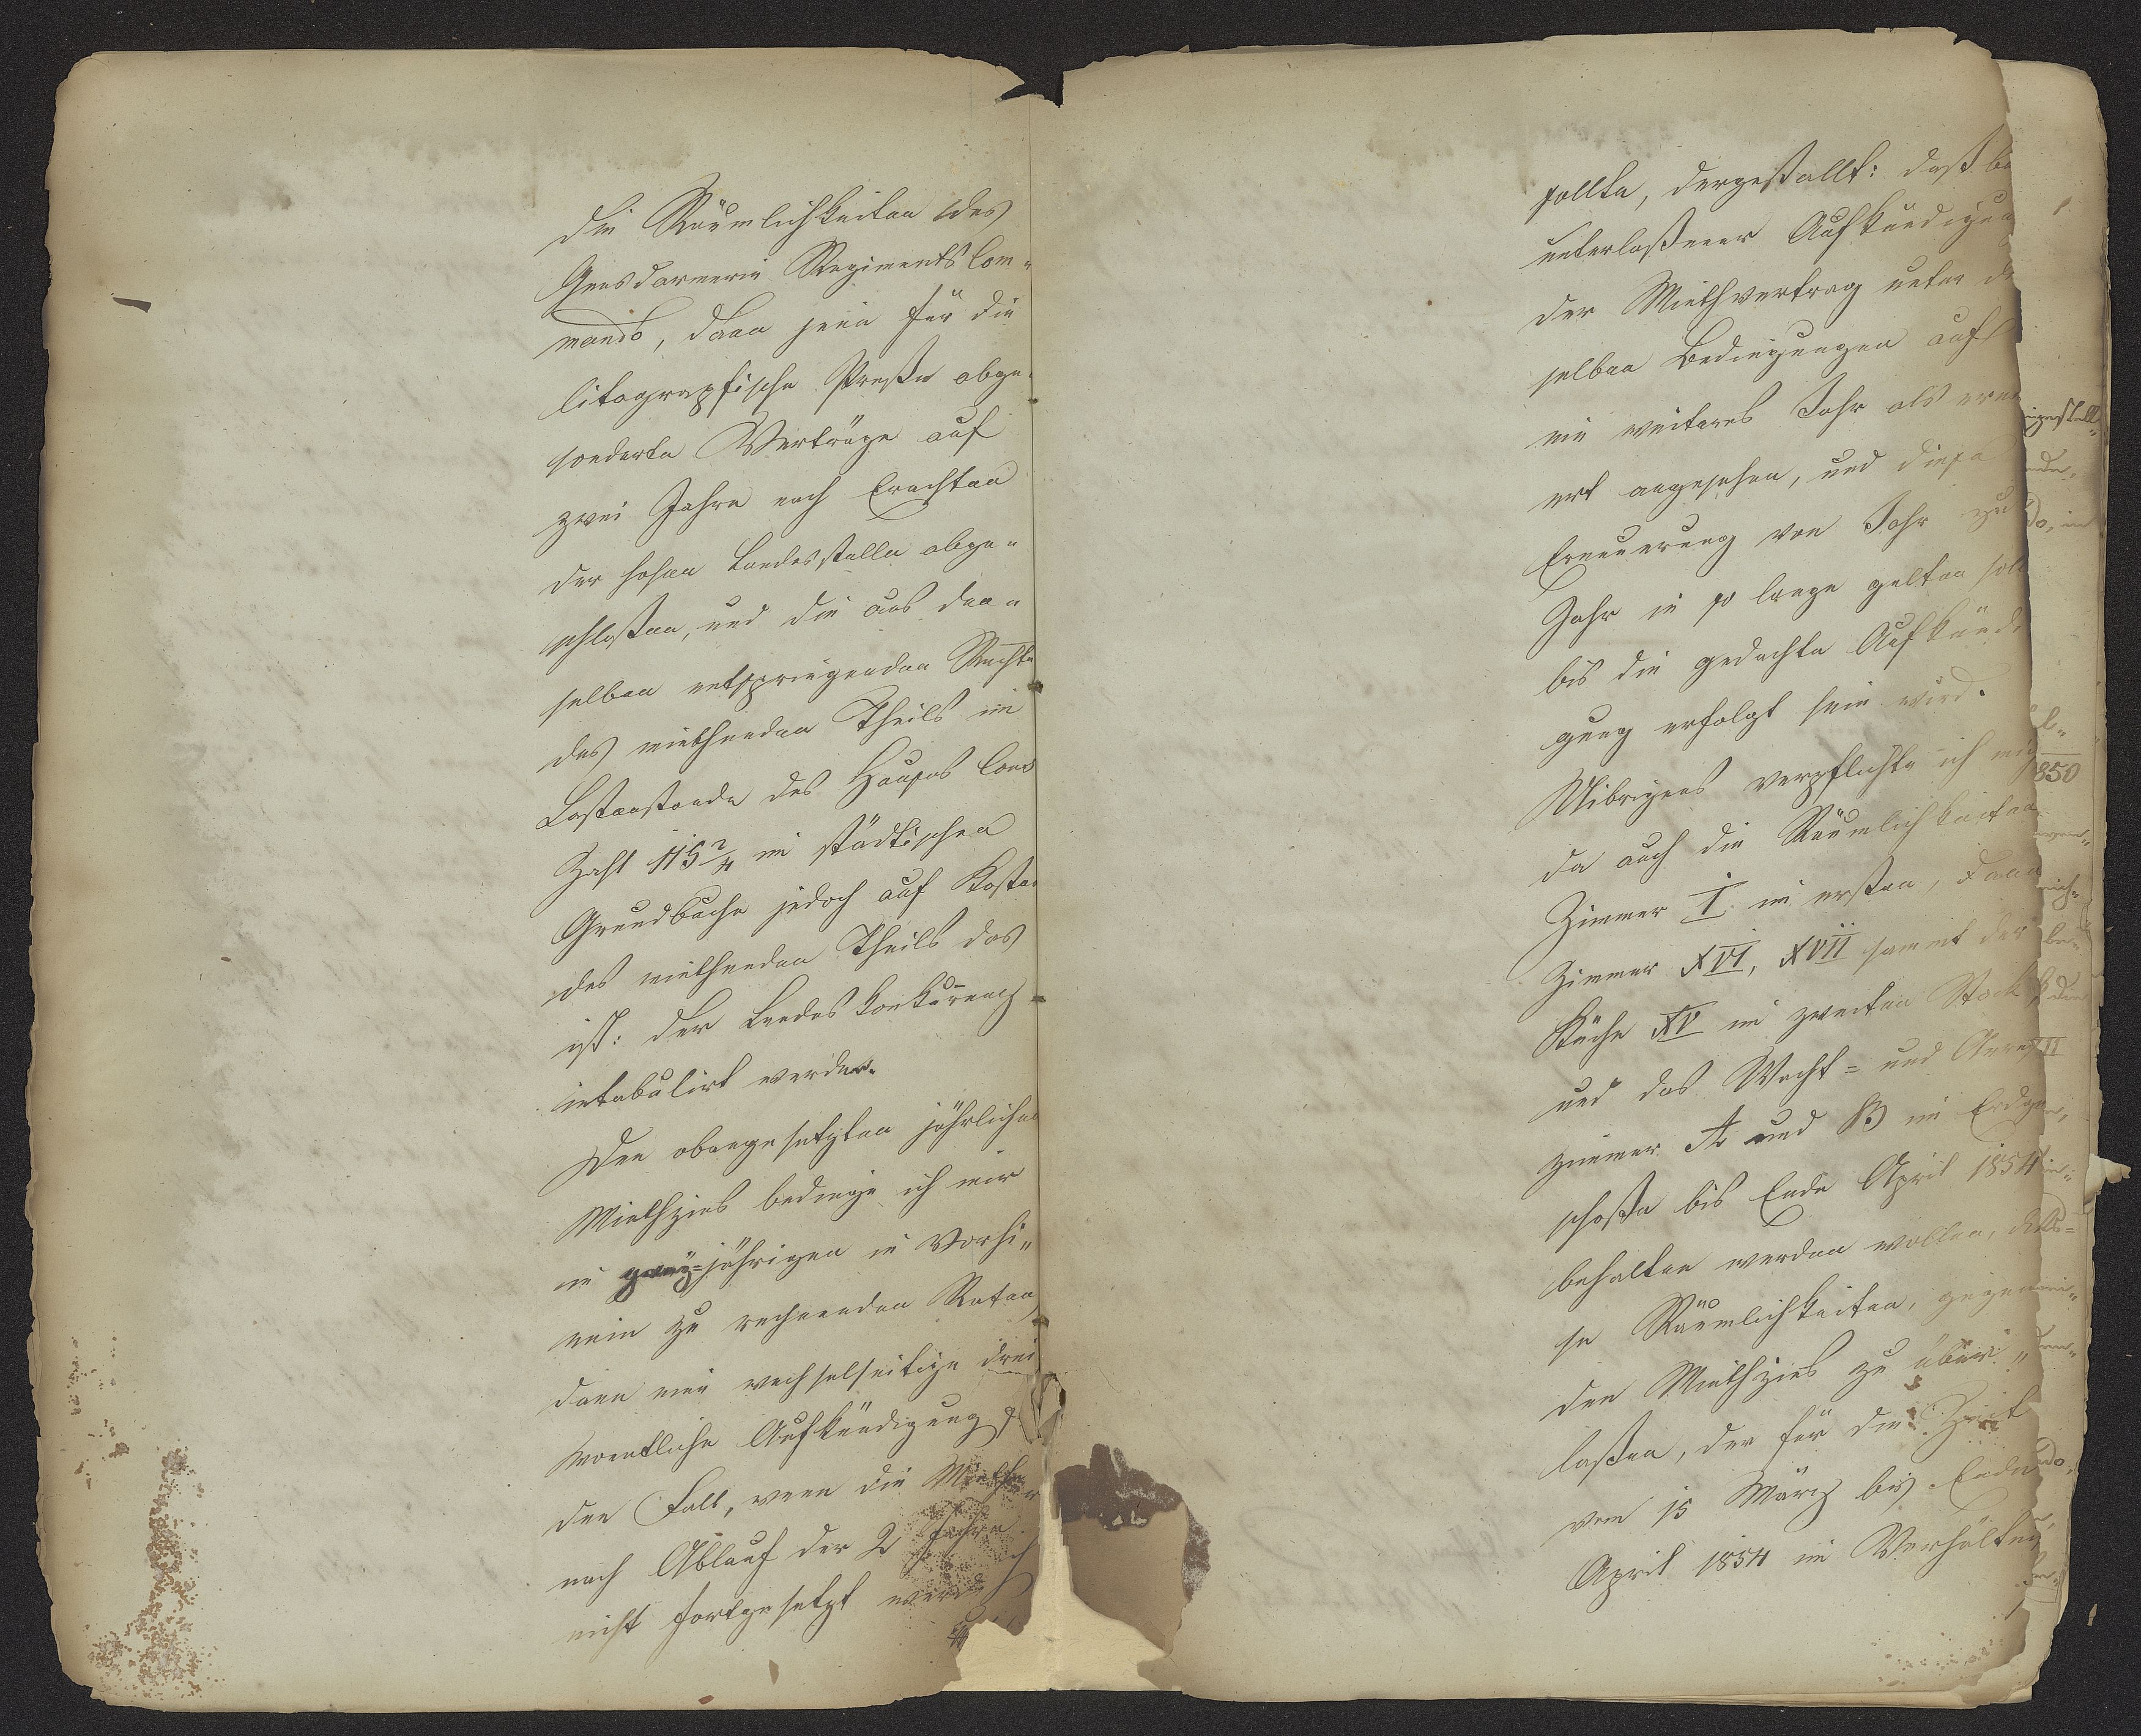 die Räumlichkeiten des
Gensdarmerie Regiments Com-
mando, dann jene für die
litografische Preße abge-
sonderte Verträge auf
zwei Jahre nach Erachten
der hohen Landesstelle abge-
schloßen, und die aus den-
selben entspringenden Rechte
des miethenden Theils im
Lastenstande des Hauses Cons
Zahl 115 2/4 im städtischen
Grundbuche jedoch auf Kosten
des miethenden Theils das
ist: der Landeskonkurrenz
intabulirt werden.
Den obangesetzten jährlichen
Miethzins bedinge ich mir
in ganz-jährigen in Vorhi-
nein zu rechnenden Raten,
dann eine wechselseitige drei
monatliche Aufkündigung
den Fall, wenn die Miethe
nach Ablauf der 2 Jahre
nicht fortgesetzt werd
sollte, dergestallt: daß be
unterlaßener Aufkündigun
der Miethvertrag unter de
selben Bedingungen auf
ein weiteres Jahr als erne
ert angesehen, und diese
Erneuerung von Jahr zu
Jahr in so lange gelten soll
bis die gedachte Aufkündi
gung erfolgt sein wird.
Uibrigens verpflichte ich mich
da auch die Räumlichkeiten
Zimmer I. im ersten, dann
Zimmer XVI, XVII sammt der
Küche XV im zweiten Stock
und das Wacht- und Arrest
zimmer A und B im Erdge-
schoße bis Ende April 1854
behalten werden wollen, die-
se Räumlichkeiten, gegen
den Miethzins zu über-
laßen, der für die Zeit
vom 15 März bis Ende
April 1854 im Verhältni
850
II